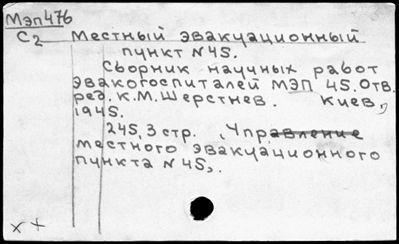 Мэп476
С2 Местный эвакуационный
пункт N45.
Сборник научных работ
эвакогоспиталей МЭП 45. Отв.
ред. К.М. Шерстнев. Киев,
1945.
245, 3 стр. „Управление
местного эвакуационного
пункта N45„.
× +